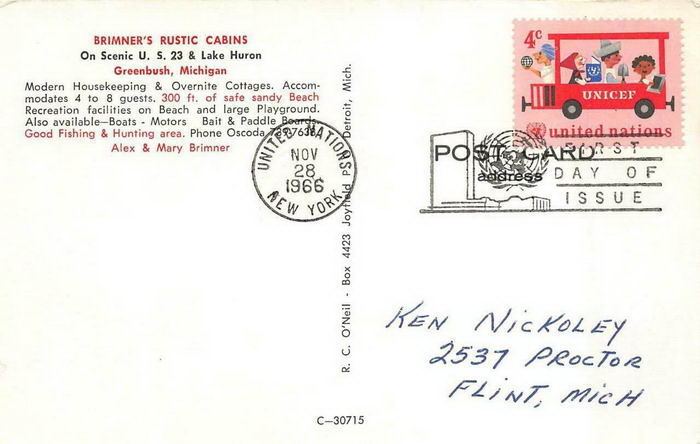 BRIMNER'S RUSTIC CABINS
On Scenic U. S. 23 & Lake Huron
Greenbush, Michigan
Modern Housekeeping & Overnite Cottages. Accom-
modates 4 to 8 guests. 300 ft. of safe sandy Beach
Recreation facilities on Beach and large Playground.
Also available—Boats - Motors Bait & Paddle Boards
Good Fishing & Hunting area. Phone Oscoda 739-7636
Alex & Mary Brimner
UNITED NATIONS
NOV
28
1966
NEW YORK
R. C. O'Neil - Box 4423 Joyfield Detroit, Mich.
4c
UNICEF
united nations
POST CARD
address
FIRST
DAY OF
ISSUE
KEN NICKOLEY
2537 PROCTOR
FLINT, MICH
C-30715